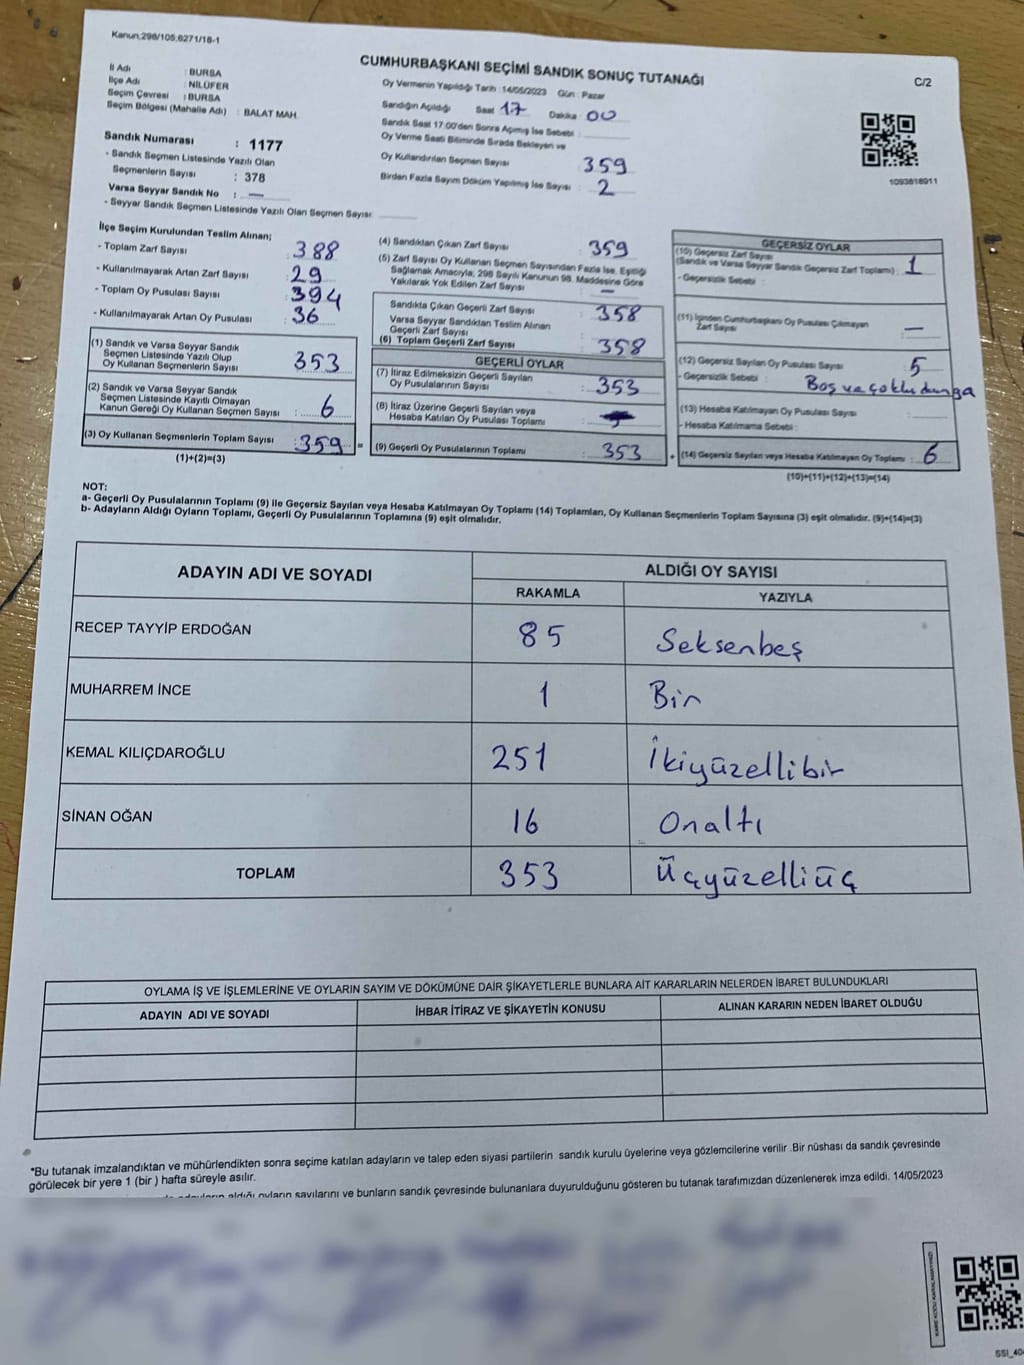 Kanun,298/105,6271/18-1
CUMHURBAŞKANI SEÇİMİ SANDIK SONUÇ TUTANAĞI
C/2
İl Adı : BURSA
İlçe Adı : NİLÜFER
Seçim Çevresi : BURSA
Seçim Bölgesi (Mahalle Adı) : BALAT MAH.
Oy Vermenin Yapıldığı Tarih : 14/05/2023 Gün : Pazar
Sandığın Açıldığı Saat 17 Dakika 00
Sandık Saat 17:00'den Sonra Açımış İse Sebebi :
Oy Verme Saati Bitiminde Sırada Bekleyen ve
Oy Kullandırılan Seçmen Sayısı 359
Birden Fazla Sayım Döküm Yapılmış İse Sayısı : 2
1093818911
Sandık Numarası : 1177
- Sandık Seçmen Listesinde Yazılı Olan
Seçmenlerin Sayısı : 378
Varsa Seyyar Sandık No : —
- Seyyar Sandık Seçmen Listesinde Yazılı Olan Seçmen Sayısı:
İlçe Seçim Kurulundan Teslim Alınan;
- Toplam Zarf Sayısı : 388
- Kullanılmayarak Artan Zarf Sayısı : 29
- Toplam Oy Pusulası Sayısı : 394
- Kullanılmayarak Artan Oy Pusulası : 36
(1) Sandık ve Varsa Seyyar Sandık
Seçmen Listesinde Yazılı Olup
Oy Kullanan Seçmenlerin Sayısı : 353
(2) Sandık ve Varsa Seyyar Sandık
Seçmen Listesinde Kayıtlı Olmayan
Kanun Gereği Oy Kullanan Seçmen Sayısı : 6
(3) Oy Kullanan Seçmenlerin Toplam Sayısı : 359 =
(1)+(2)=(3)
(4) Sandıktan Çıkan Zarf Sayısı : 359
(5) Zarf Sayısı Oy Kullanan Seçmen Sayısından Fazla İse, Eşitliği
Sağlamak Amacıyla, 298 Sayılı Kanunun 98. Maddesine Göre
Yakılarak Yok Edilen Zarf Sayısı : —
Sandıkta Çıkan Geçerli Zarf Sayısı : 358
Varsa Seyyar Sandıktan Teslim Alınan
Geçerli Zarf Sayısı
(6) Toplam Geçerli Zarf Sayısı : 358
GEÇERLİ OYLAR
(7) İtiraz Edilmeksizin Geçerli Sayılan
Oy Pusulalarının Sayısı : 353
(8) İtiraz Üzerine Geçerli Sayılan veya
Hesaba Katılan Oy Pusulası Toplamı :
(9) Geçerli Oy Pusulalarının Toplamı : 353 +
GEÇERSİZ OYLAR
(10) Geçersiz Zarf Sayısı
(Sandık ve Varsa Seyyar Sandık Geçersiz Zarf Toplamı) : 1
- Geçersizlik Sebebi :
(11) İçinden Cumhurbaşkanı Oy Pusulası Çıkmayan
Zarf Sayısı : —
(12) Geçersiz Sayılan Oy Pusulası Sayısı : 5
- Geçersizlik Sebebi : Boş ve çoklu damga
(13) Hesaba Katılmayan Oy Pusulası Sayısı :
- Hesaba Katılmama Sebebi :
(14) Geçersiz Sayılan veya Hesaba Katılmayan Oy Toplamı : 6
(10)+(11)+(12)+(13)=(14)
NOT:
a- Geçerli Oy Pusulalarının Toplamı (9) ile Geçersiz Sayılan veya Hesaba Katılmayan Oy Toplamı (14) Toplamları, Oy Kullanan Seçmenlerin Toplam Sayısına (3) eşit olmalıdır. (9)+(14)=(3)
b- Adayların Aldığı Oyların Toplamı, Geçerli Oy Pusulalarının Toplamına (9) eşit olmalıdır.
ADAYIN ADI VE SOYADI
ALDIĞI OY SAYISI
RAKAMLA YAZIYLA
RECEP TAYYİP ERDOĞAN 85 Seksenbeş
MUHARREM İNCE 1 Bir
KEMAL KILIÇDAROĞLU 251 İkiyüzellibir
SİNAN OĞAN 16 Onaltı
TOPLAM 353 Üçyüzelliüç
OYLAMA İŞ VE İŞLEMLERİNE VE OYLARIN SAYIM VE DÖKÜMÜNE DAİR ŞİKAYETLERLE BUNLARA AİT KARARLARIN NELERDEN İBARET BULUNDUKLARI
ADAYIN ADI VE SOYADI İHBAR İTİRAZ VE ŞİKAYETİN KONUSU ALINAN KARARIN NEDEN İBARET OLDUĞU
*Bu tutanak imzalandıktan ve mühürlendikten sonra seçime katılan adayların ve talep eden siyasi partilerin sandık kurulu üyelerine veya gözlemcilerine verilir .Bir nüshası da sandık çevresinde
görülecek bir yere 1 (bir ) hafta süreyle asılır.
aldığı oyların sayılarını ve bunların sandık çevresinde bulunanlara duyurulduğunu gösteren bu tutanak tarafımızdan düzenlenerek imza edildi. 14/05/2023
KARE KODU KARALAMAYINIZ!